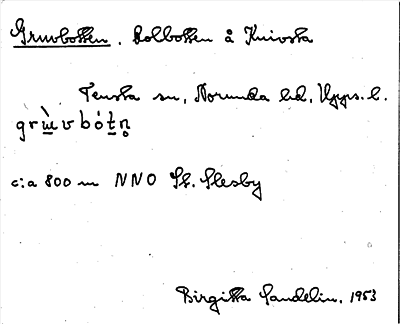 Gruvbotten. Dolbotten å Knivsta
Tensta sn, Norunda hd, Upps. l.
grùvbót̠n̥
c:a 800 m NNO St. Ulesby
Birgitta Sandelin, 1953